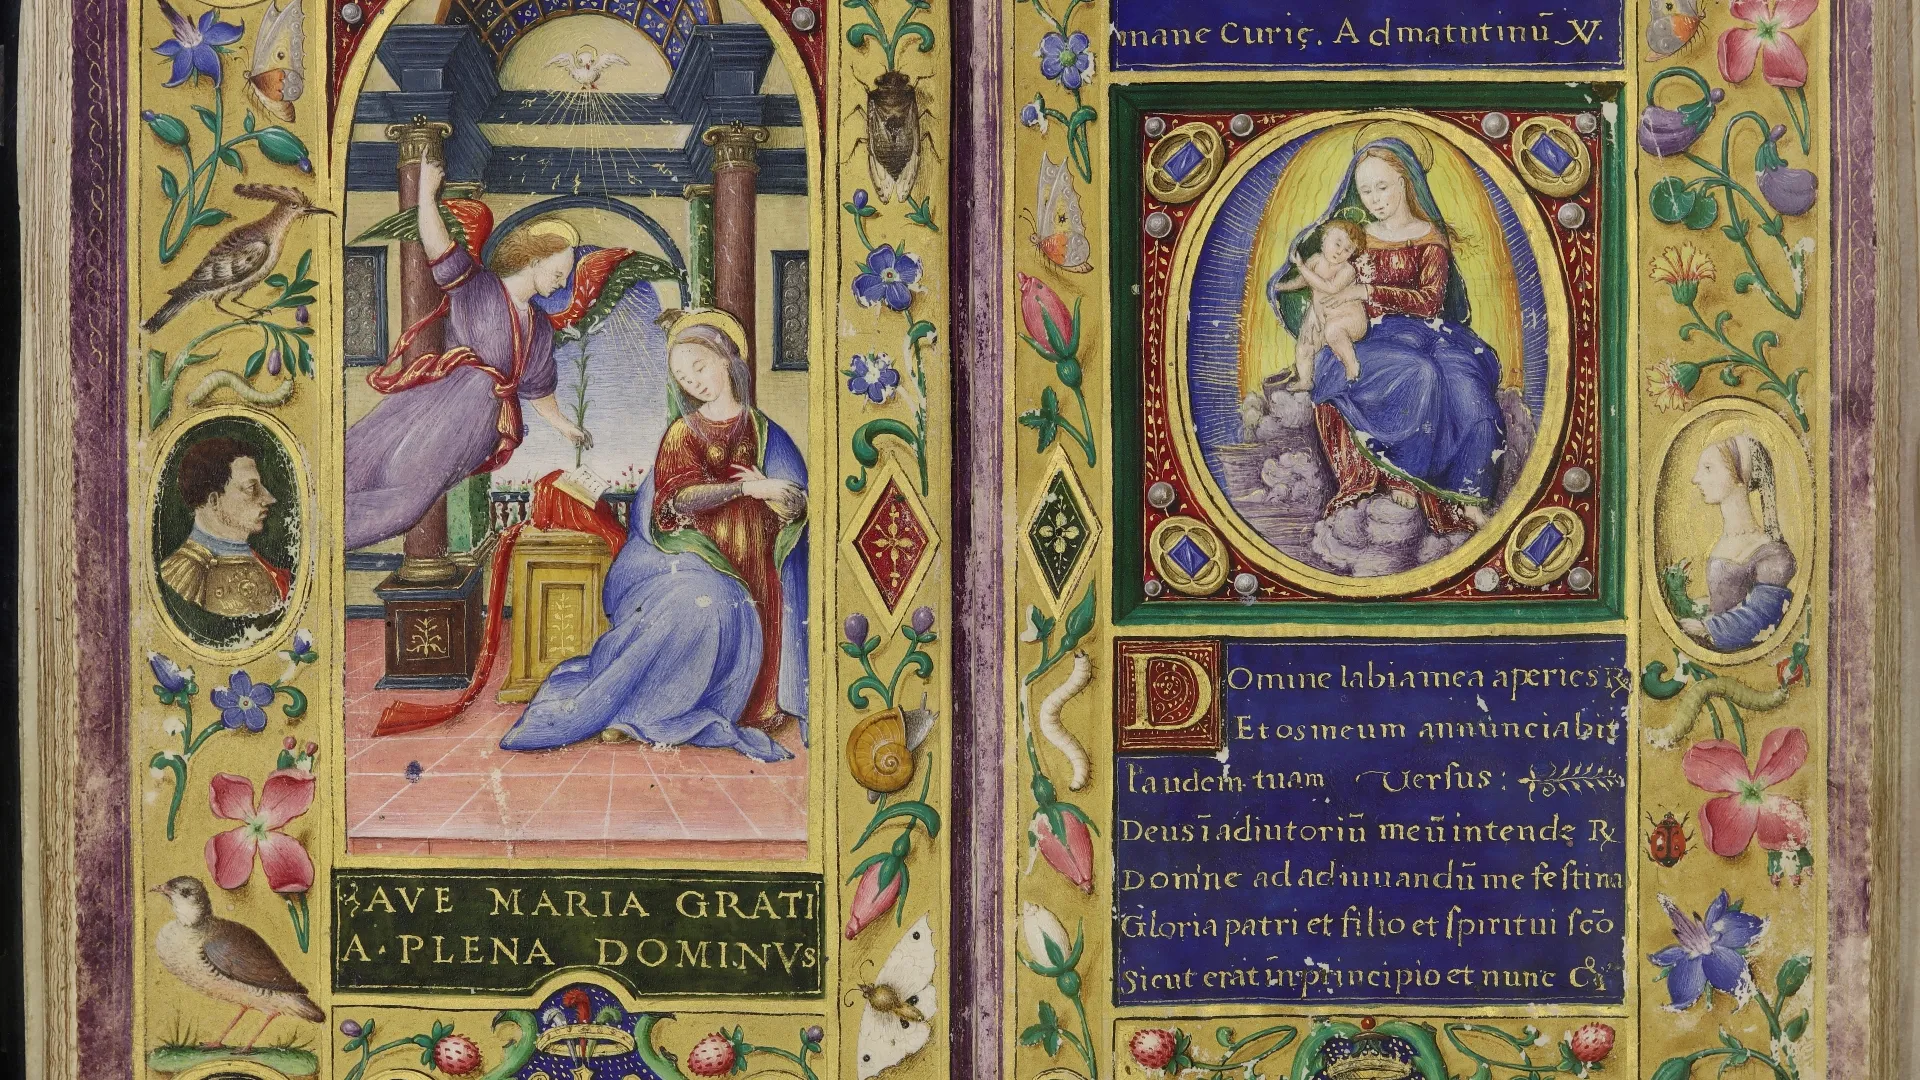 AVE MARIA GRATI
A · PLENA DOMINVS
mane Curię. Ad matutinū ℣.
Domine labia mea aperies ℞
Et os meum annunciabit
laudem tuam Uersus:
Deus ī adiutoriū meū intende ℞
Domine ad adiuuandū me festina
Gloria patri et filio et spiritui scō
Sicut erat in principio et nunc &